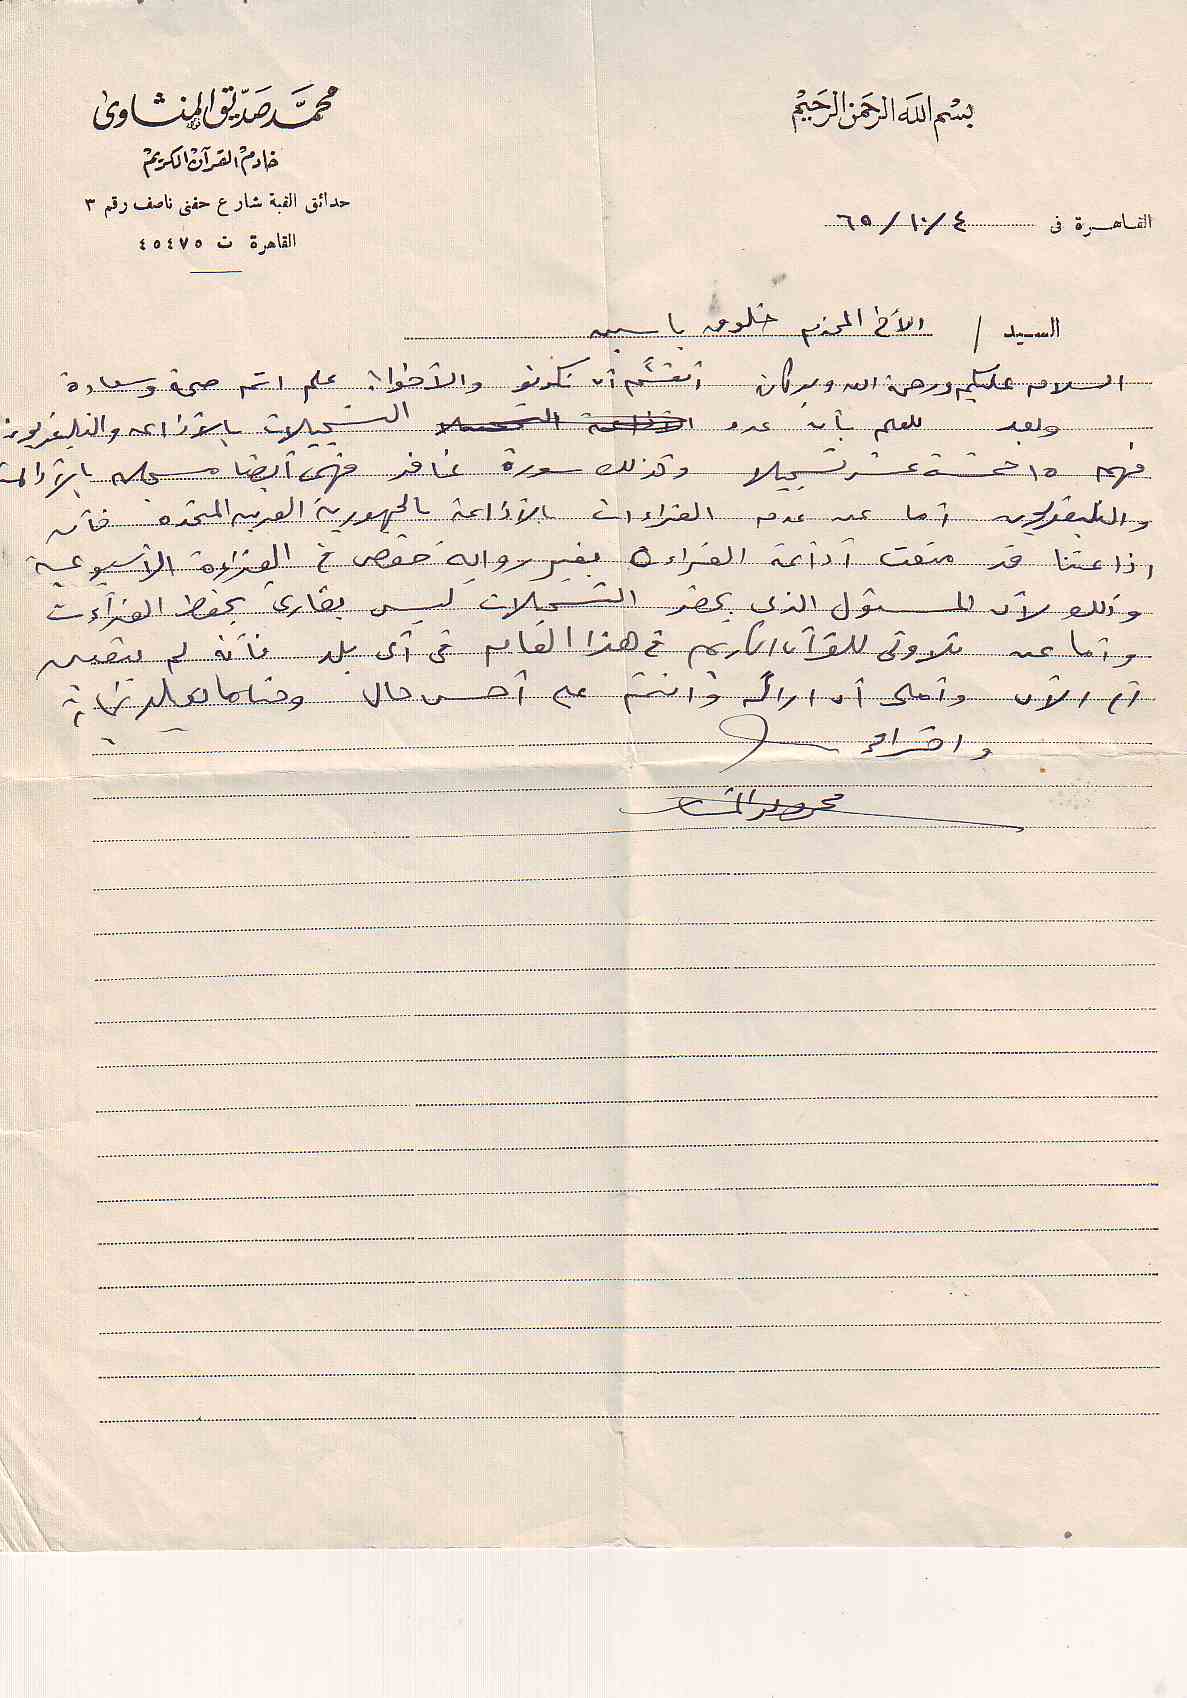 بسم الله الرحمن الرحيم
محمد صديق المنشاوى
خادم القرآن الكريم
حدائق القبة شارع حفنى ناصف رقم ٣
القاهرة ت ٤٥٤٧٥
القاهرة فى ٤/١٠/٦٥
السيد / الأخ المحترم خلوق ياسين
السلام عليكم ورحمة الله وبركاته أتعشم أن تكونو والأخوان علم اتم صحة وسعادة
وبعد للعلم بأن عدد التسجيلات بالأذاعه والتليفزيون
فهم ١٥ خمسة عشر تسجيلا وكذلك سورة غافر فهى أيضا مسجله بالأذاعة
والتليفزيون أما عن عدم القراءات بالأذاعة بالجمهورية العربيه المتحده فأن
اذاعتنا قد منعت أذاعة القراءه بغير رواية حفص فى القراءة الأسبوعية
وذلك لأن المسئول الذى يحضر التسجيلات ليس بقارئ يحفظ القرآءت
وأما عن تلاوتى للقرآن الكريم فى هذا العام فى أى بلد فأنه لم يتعين
الى الآن وأملى أن اراكم وأنتم على أحسن حال وختاما لكم تحياتى
واحترامى
محمد صديق المنشاوى